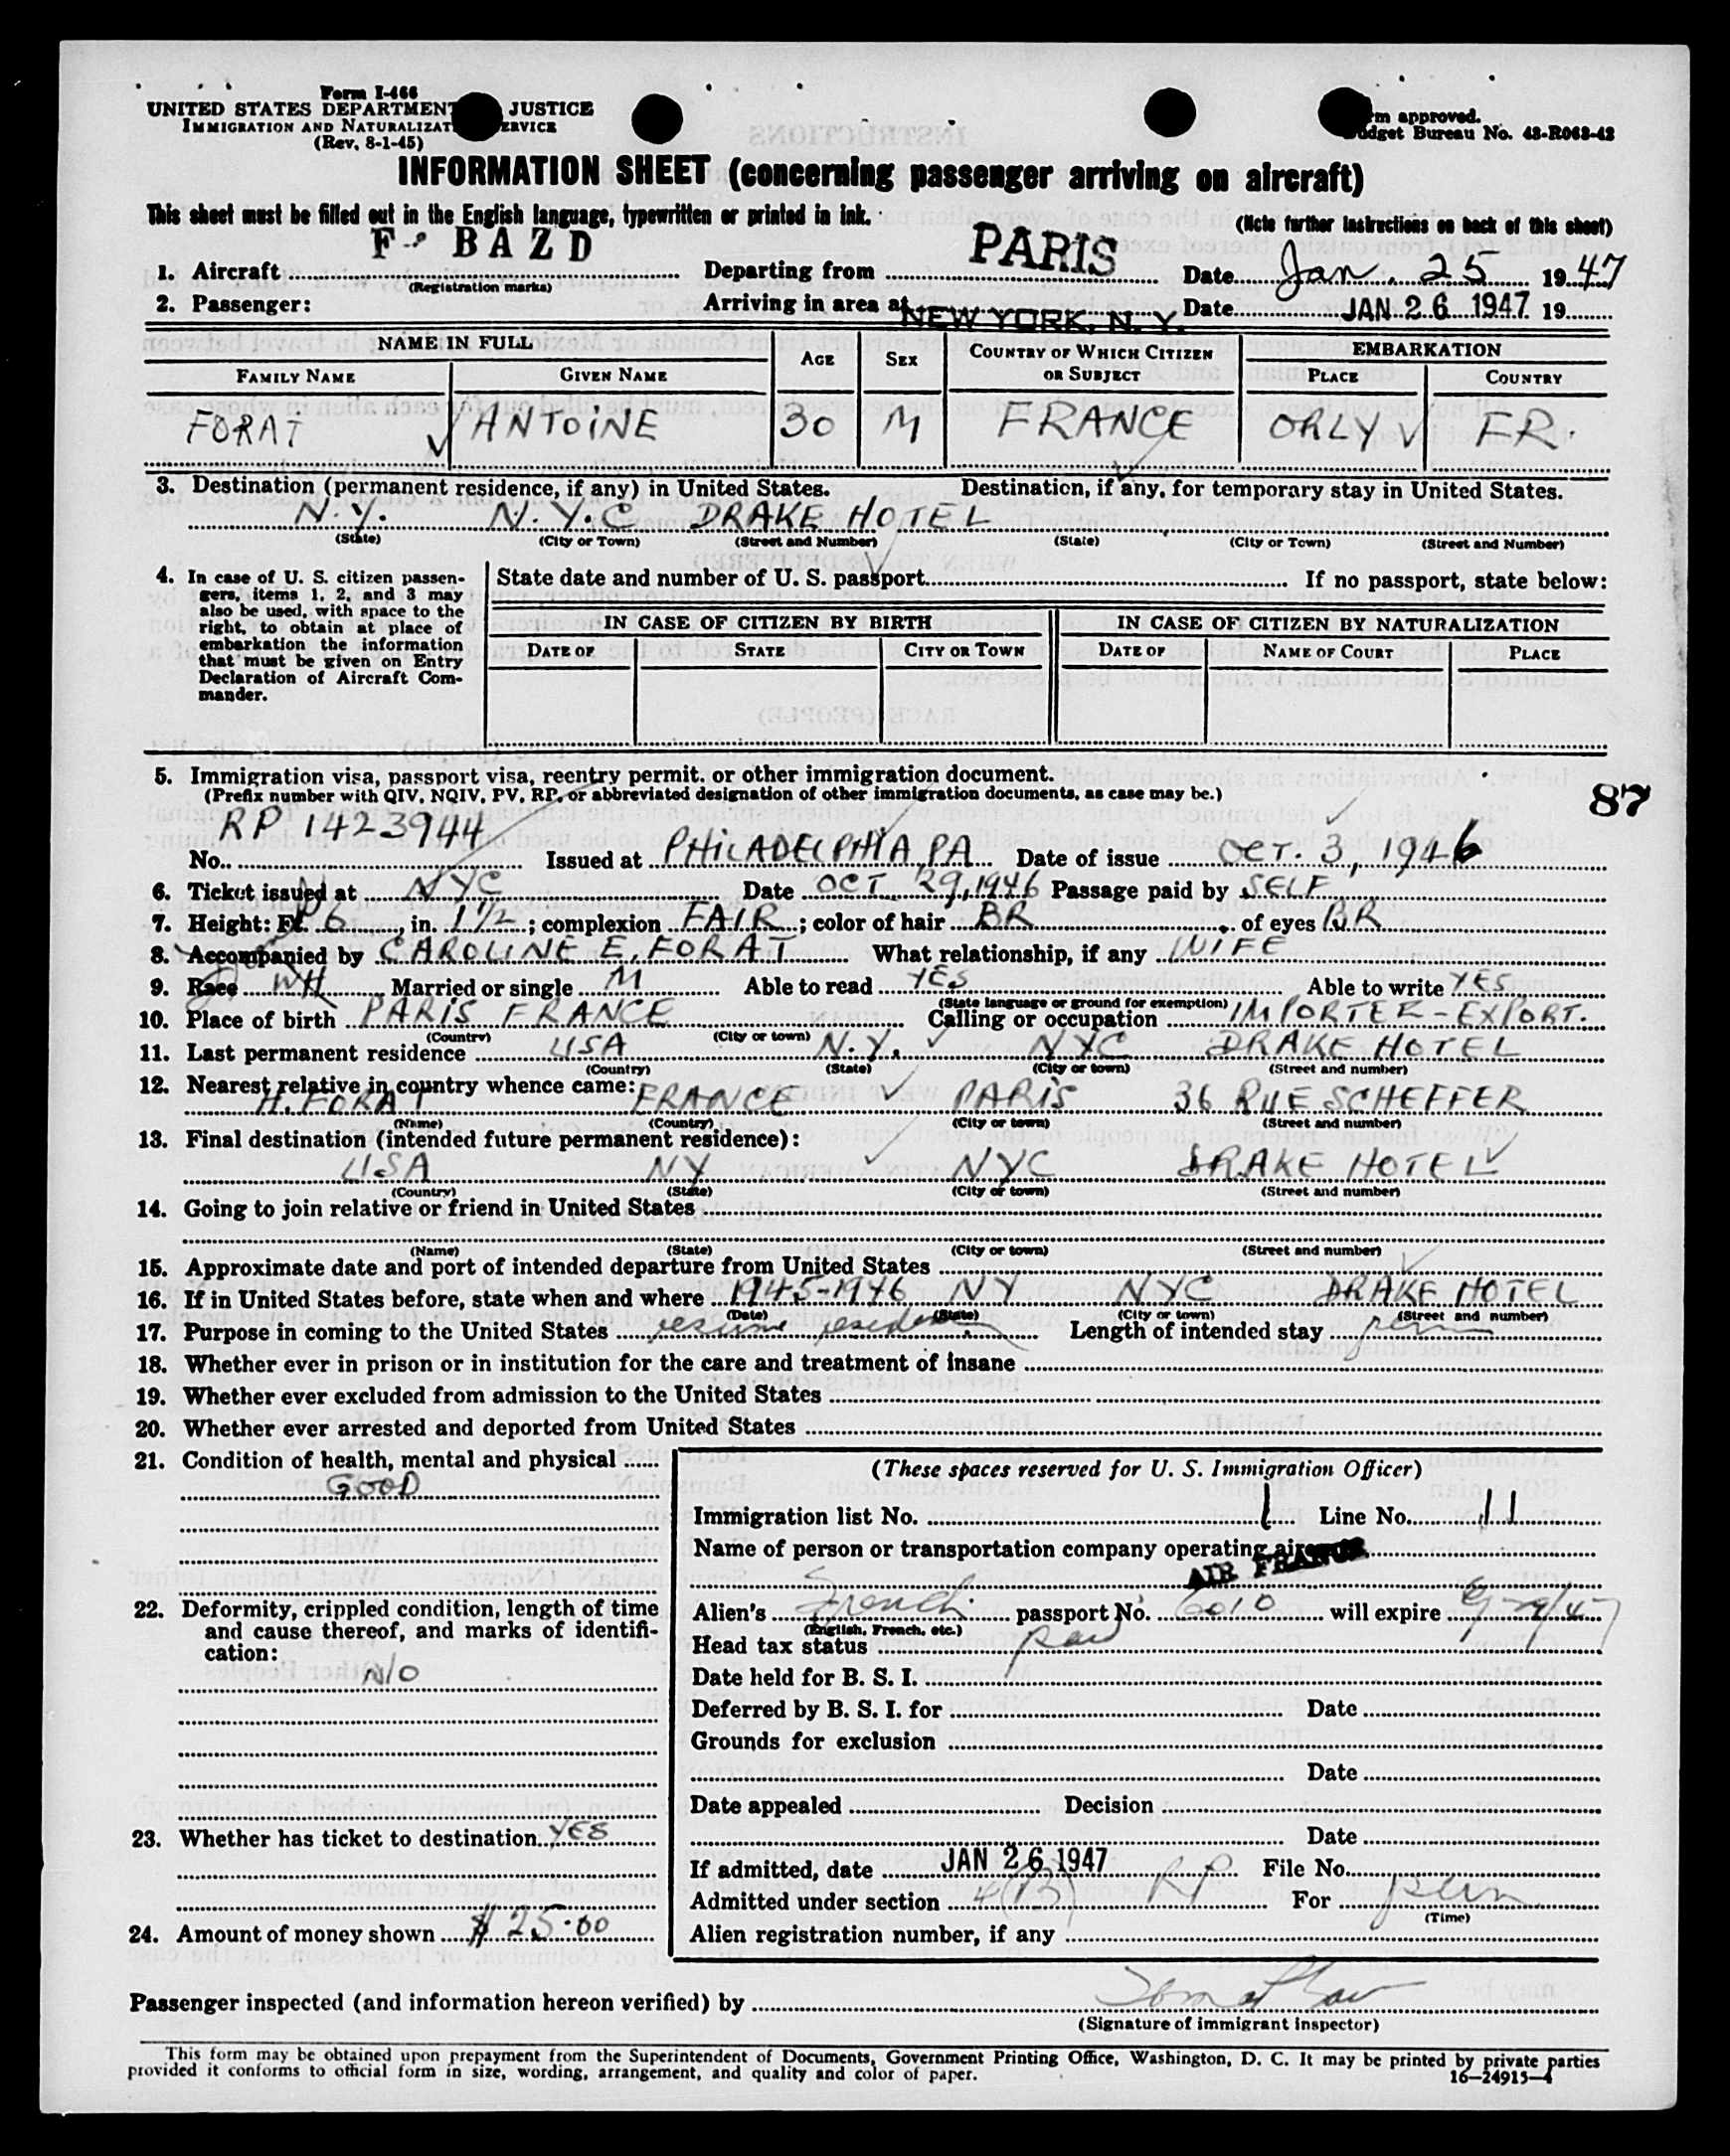 Form I-466
UNITED STATES DEPARTMENT JUSTICE
IMMIGRATION AND NATURALIZAT ERVICE
(Rev. 8-1-45)
rm approved.
udget Bureau No. 43-R063-42
INFORMATION SHEET (concerning passenger arriving on aircraft)
This sheet must be filled out in the English language, typewritten or printed in ink.
(Note further instructions on back of this sheet)
1. Aircraft F- BAZD Departing from PARIS Date Jan. 25 1947
(Registration marks)
2. Passenger: Arriving in area at NEW YORK, N. Y. Date JAN 26 1947 19
NAME IN FULL AGE SEX COUNTRY OF WHICH CITIZEN OR SUBJECT EMBARKATION
FAMILY NAME GIVEN NAME PLACE COUNTRY
FORAT ANTOINE 30 M FRANCE ORLY FR.
3. Destination (permanent residence, if any) in United States. Destination, if any, for temporary stay in United States.
N.Y. N.Y.C DRAKE HOTEL
(State) (City or Town) (Street and Number) (State) (City or Town) (Street and Number)
4. In case of U. S. citizen passen-
gers, items 1, 2, and 3 may
also be used, with space to the
right, to obtain at place of
embarkation the information
that must be given on Entry
Declaration of Aircraft Com-
mander.
State date and number of U. S. passport If no passport, state below:
IN CASE OF CITIZEN BY BIRTH IN CASE OF CITIZEN BY NATURALIZATION
DATE OF STATE CITY OR TOWN DATE OF NAME OF COURT PLACE
5. Immigration visa, passport visa, reentry permit, or other immigration document.
(Prefix number with QIV, NQIV, PV, RP, or abbreviated designation of other immigration documents, as case may be.)
87
No. RP 1423944 Issued at PHILADELPHIA, PA Date of issue OCT. 3, 1946
6. Ticket issued at NYC Date OCT 29, 1946 Passage paid by SELF
7. Height: Ft. 6, in. 1 1/2; complexion FAIR; color of hair BR, of eyes BR
8. Accompanied by CAROLINE E. FORAT What relationship, if any WIFE
9. Race WH Married or single M Able to read YES Able to write YES
(State language or ground for exemption)
10. Place of birth PARIS FRANCE Calling or occupation IMPORTER-EXPORT.
(Country) (City or town)
11. Last permanent residence USA N.Y. NYC DRAKE HOTEL
(Country) (State) (City or town) (Street and number)
12. Nearest relative in country whence came:
H. FORAT FRANCE PARIS 36 RUE SCHEFFER
(Name) (Country) (City or town) (Street and number)
13. Final destination (intended future permanent residence):
USA NY NYC DRAKE HOTEL
(Country) (State) (City or town) (Street and number)
14. Going to join relative or friend in United States
(Name) (State) (City or town) (Street and number)
15. Approximate date and port of intended departure from United States
16. If in United States before, state when and where 1945-1946 NY NYC DRAKE HOTEL
(Date) (State) (City or town) (Street and number)
17. Purpose in coming to the United States resume residence Length of intended stay perm
18. Whether ever in prison or in institution for the care and treatment of insane
19. Whether ever excluded from admission to the United States
20. Whether ever arrested and deported from United States
21. Condition of health, mental and physical
GOOD
22. Deformity, crippled condition, length of time
and cause thereof, and marks of identifi-
cation:
NO
23. Whether has ticket to destination YES
24. Amount of money shown $25.00
(These spaces reserved for U. S. Immigration Officer)
Immigration list No. 1 Line No. 11
Name of person or transportation company operating aircraft
AIR FRANCE
Alien's French passport No. 6010 will expire
(English, French, etc.)
Head tax status
Date held for B. S. I.
Deferred by B. S. I. for Date
Grounds for exclusion
Date
Date appealed Decision
Date
If admitted, date JAN 26 1947 File No.
Admitted under section 4(B) RP For perm
(Time)
Alien registration number, if any
Passenger inspected (and information hereon verified) by
(Signature of immigrant inspector)
This form may be obtained upon prepayment from the Superintendent of Documents, Government Printing Office, Washington, D. C. It may be printed by private parties
provided it conforms to official form in size, wording, arrangement, and quality and color of paper. 16—24915-4